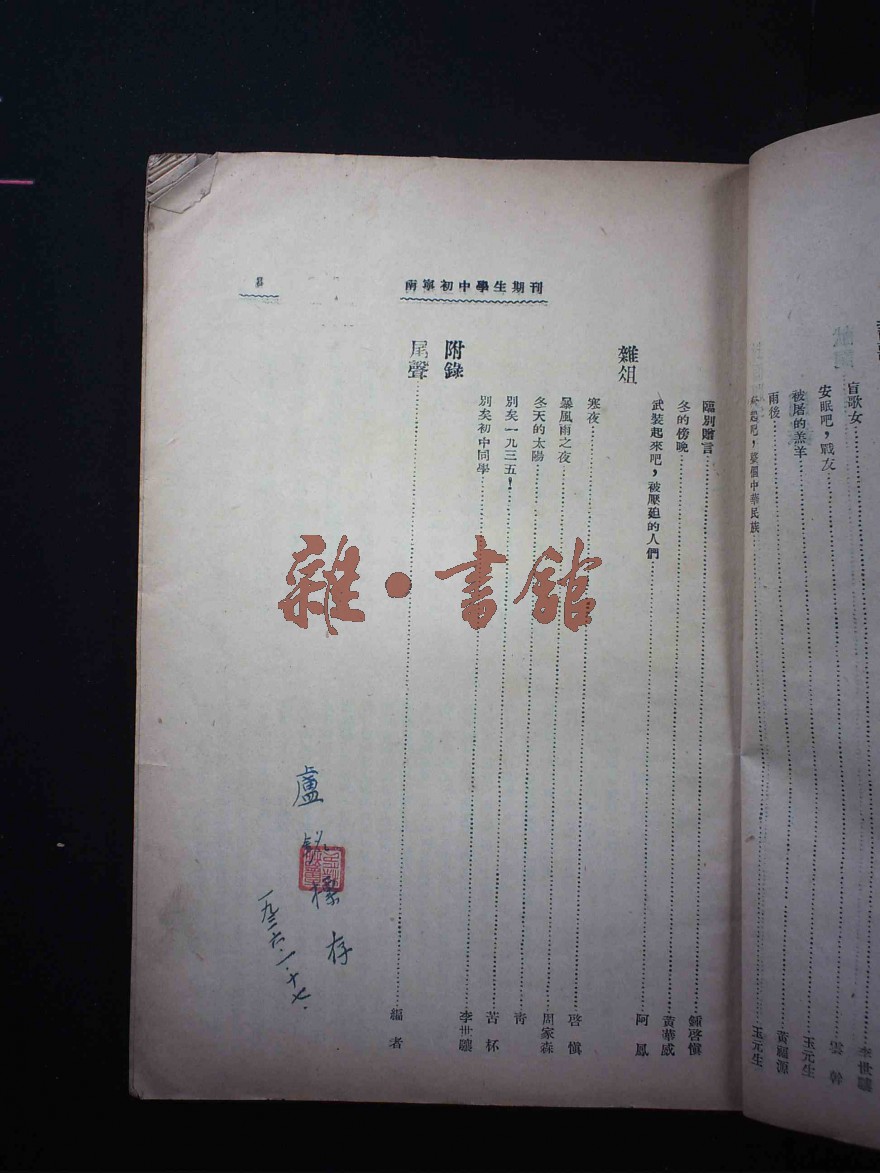 南寧初中學生期刊
3
盲歌女……李世驤
安眠吧，戰友……雲幹
被屠的羔羊……玉元生
雨後……黃福源
吧，整個中華民族……玉元生
雜俎
臨別贈言……鍾啓慎
冬的傍晚……黃華威
武裝起來吧，被壓廹的人們……阿鳳
寒夜……啓慎
暴風雨之夜……周家森
冬天的太陽……青
別矣一九三五！……苦杯
別矣初中同學……李世驤
附錄
尾聲……編者
盧 標存
一九三六·一·十七·
雜·書館